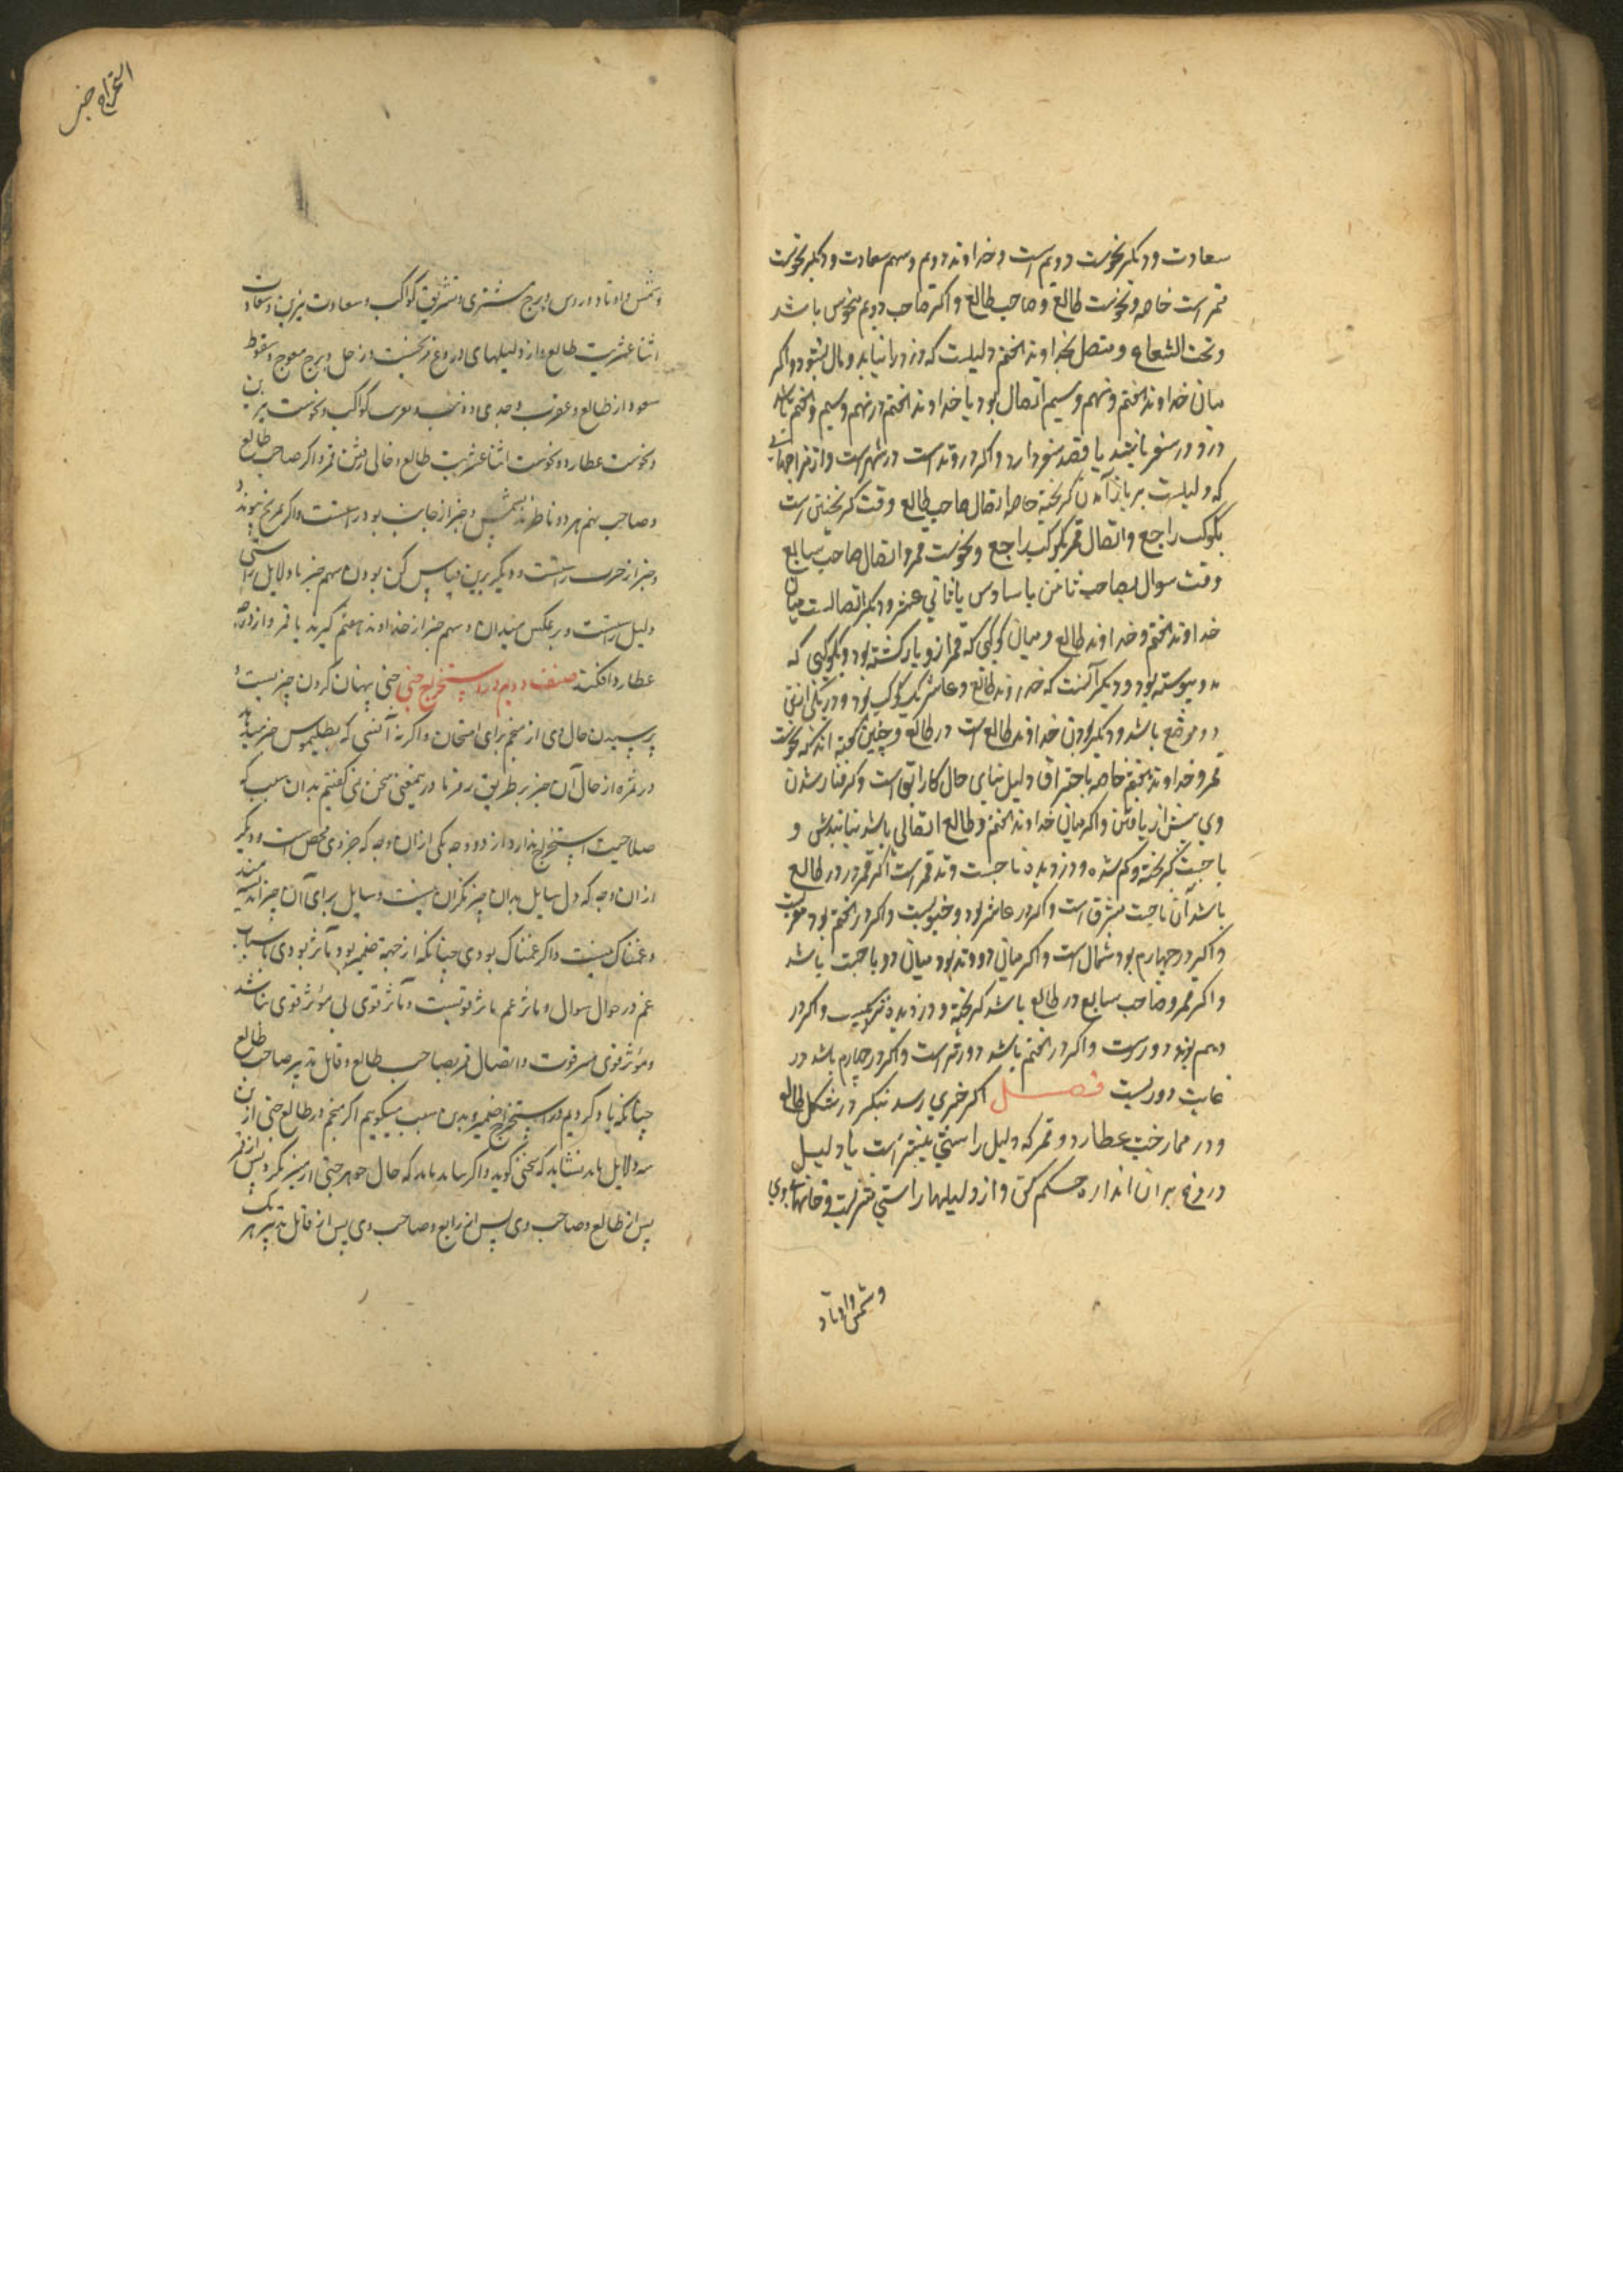 سعادت و دیکر نحوست دویم است و خداوند دویم و سهم سعادت و دیکر نحوست
قمر است خاصه و نحوست طالع و صاحب طالع و اکر صاحب دویم منحوس باشد
و تحت الشعاع و متصل بخداوند هفتم دلیلست که دزد را نیابد و مال بشود و اکر
میان خداوند هفتم و نهم و سیم اتصال بود یا خداوند هفتم در نهم و سیم و هفتم باشد
دزد در سفر باشد یا قصد سفر دارد و اکر در وتد است در شهر است و از مزاجهای
که دلیلست بر باز آمدن کریخته خاصه اتصال صاحب طالع وقت کریختن است
بکوکب راجع و اتصال قمر بکوکب راجع و نحوست قمر و اتصال صاحب سابع
وقت سوال بصاحب ثامن یا سادس یا ثانی عشر و دیکر اتصالست میان
خداوند هفتم و خداوند طالع و میان کوکبی که قمر از و باز کشته بود و بکوکبی که
بدو پیوسته بود و دیکر آنست که خداوند طالع و عاشر یک کوکب بود و در یکی ازین
دو موضع باشد و دیکر بودن خداوند طالع است در طالع و چنین کفته اند که نحوست
قمر و خداوند هفتم خاصه باحتراق دلیل تباهی حال کار ابق است و کرفتار شدن
وی پیش از یافتن و اکر میان خداوند هفتم و طالع اتصالی باشد نیابندش و
ناحیت کریخته و کم شده و دزدیده ناحیت وتد قمر است اکر قمر در طالع
باشد آن ناحیت مشرق است و اکر در عاشر بود جنوبیست و اکر در هفتم بود مغربست
و اکر در چهارم بود شمال است و اکر میان دو وتد بود میان دو ناحیت باشد
و اکر قمر و صاحب سابع در طالع باشد کریخته و دزدیده نزدیکست و اکر در
دهم بود دورست و اکر در هفتم باشد دورتر است و اکر در چهارم باشد در
غایت دوریست فصل اکر خبری رسد بنکر در شکل طالع
و در ممازجت عطارد و قمر که دلیل راستی بیشتر است یا دلیل
دروغ بران اندازه حکم کن و از دلیلها راستی قمریست و خانهای وی
و شمس و اوتاد
استخراج خبی
و شمس و اوتاد و برج مشتری و تشریق کواکب و سعادت نیرین و سعادت
اثنا عشریت طالع و از دلیلهای دروغ نحسیت و زحل و برج معوج و سقوط
سعود از طالع و عقرب و جدی و کواکب و نحوست نیرین
و نحوست عطارد و نحوست اثنا عشریت طالع و خالی رفتن قمر و اکر صاحب طالع
و صاحب نهم هر دو ناظرند بشمس و خبر از جانب بود راستست و اکر بمریخ پیوندد
و خبر از حرب راستست و دیکر برین قیاس کن بودن سهم خبر با دلایل راستی
دلیل راستست و بر عکس میدان و سهم خبر از خداوند هفتم کیرند با قمر و از درجه
عطارد افکنند صنف دویم در استخراج خبی خبی پنهان کردن چیزیست و
پرسیدن حال وی از منجم برای امتحان و اکر نه آنستی که بطلیموس خبر میدهد
در ثمره از حال آن چیز بر طریق رمز ما در نمیغنی سخن نمی کفتیم بدان سبب که
صلاحیت استخراج ندارد از دو وجه یکی ازان وجه که جزوی محض است و دیکر
ازان وجه که دل سایل بدان چیز نکران نیست و سایل برای آن چیز اندیشه مند
و غمناک نیست و اکر غمناک بودی چنانکه از جهة ضمیر بود تأثر بودی باسباب
غم در حوال سوال و تاثر غم تاثر قویست و تأثر قوی بی مؤثر قوی نباشد
و مؤثر قوی قمرست و اتصال قمر بصاحب طالع و قابل تدبیر صاحب طالع
چنانکه یاد کردیم در استخراج ضمیر و بدین سبب میکوییم اکر منجم در طالع خبی ازین
سه دلایل یابد نشاید که سخن کوید و اکر بیابد باید که حال جوهر خبی از نیز نکرد پس از قمر
پس از طالع و صاحب وی پس از رابع و صاحب وی پس از قابل تدبیر هر یک